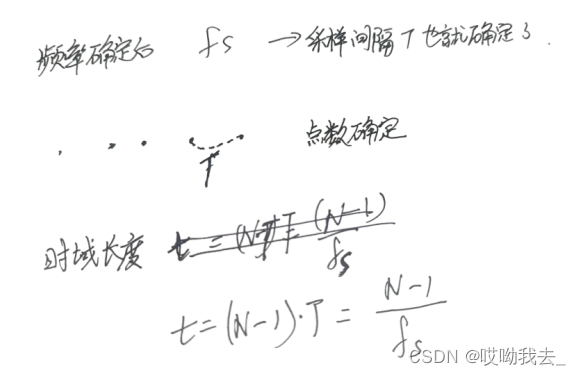 频率确定后 fs → 采样间隔T也就确定了.
T 点数确定
时域长度 t = (N-1)T = (N-1)/fs
t = (N-1)·T = N-1/fs
CSDN @哎呦我去_